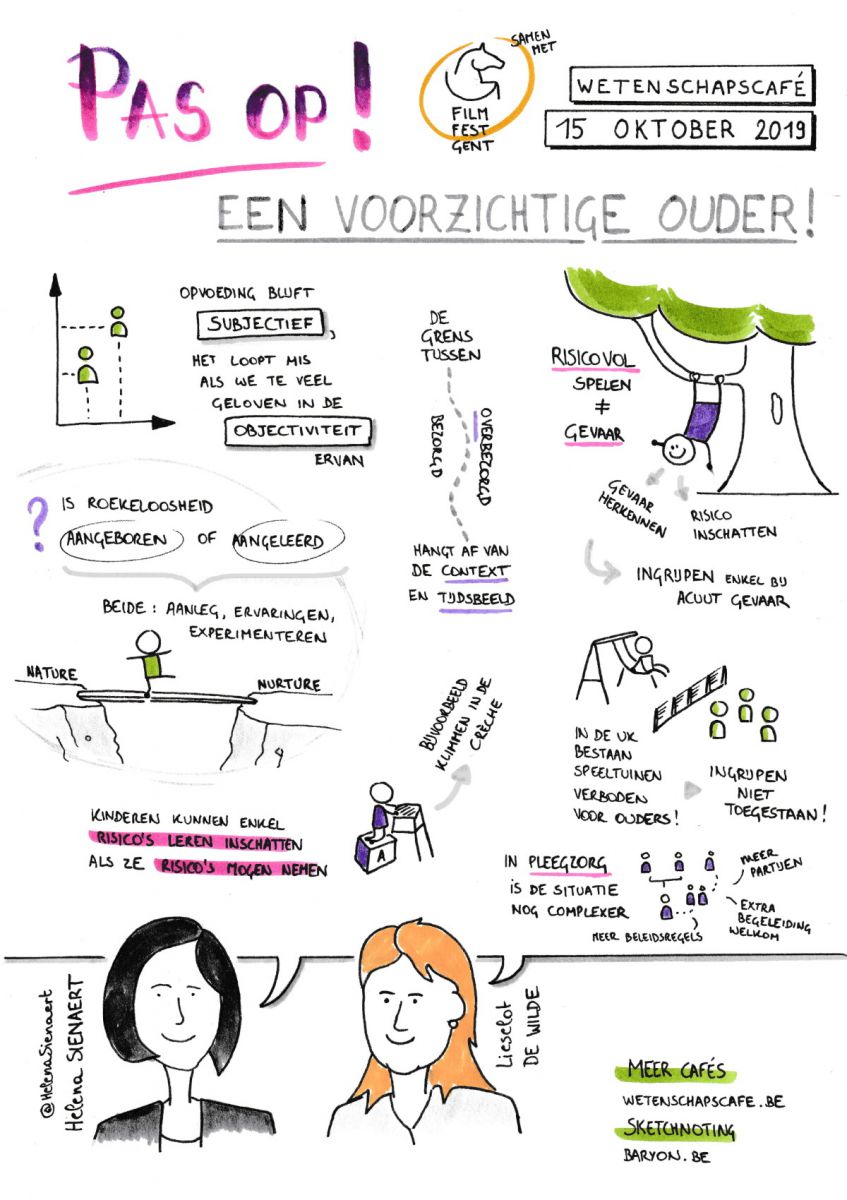 PAS OP!
SAMEN
MET
FILM
FEST
GENT
WETENSCHAPSCAFÉ
15 OKTOBER 2019
EEN VOORZICHTIGE OUDER!
OPVOEDING BLIJFT
SUBJECTIEF,
HET LOOPT MIS
ALS WE TE VEEL
GELOVEN IN DE
OBJECTIVITEIT
ERVAN
DE
GRENS
TUSSEN
BEZORGD
OVERBEZORGD
HANGT AF VAN
DE CONTEXT
EN TIJDSBEELD
RISICOVOL
SPELEN
≠
GEVAAR
GEVAAR
HERKENNEN
RISICO
INSCHATTEN
INGRIJPEN ENKEL BIJ
ACUUT GEVAAR
? IS ROEKELOOSHEID
AANGEBOREN OF AANGELEERD
BEIDE: AANLEG, ERVARINGEN,
EXPERIMENTEREN
NATURE
NURTURE
BIJVOORBEELD
KLIMMEN IN DE
CRÈCHE
A
KINDEREN KUNNEN ENKEL
RISICO'S LEREN INSCHATTEN
ALS ZE RISICO'S MOGEN NEMEN
IN DE UK
BESTAAN
SPEELTUINEN
VERBODEN
VOOR OUDERS!
INGRIJPEN
NIET
TOEGESTAAN!
IN PLEEGZORG
IS DE SITUATIE
NOG COMPLEXER
MEER
PARTIJEN
EXTRA
BEGELEIDING
WELKOM
MEER BELEIDSREGELS
@HelenaSienaert
Helena SIENAERT
Lieselot
DE WILDE
MEER CAFÉS
WETENSCHAPSCAFE.BE
SKETCHNOTING
BARYON.BE